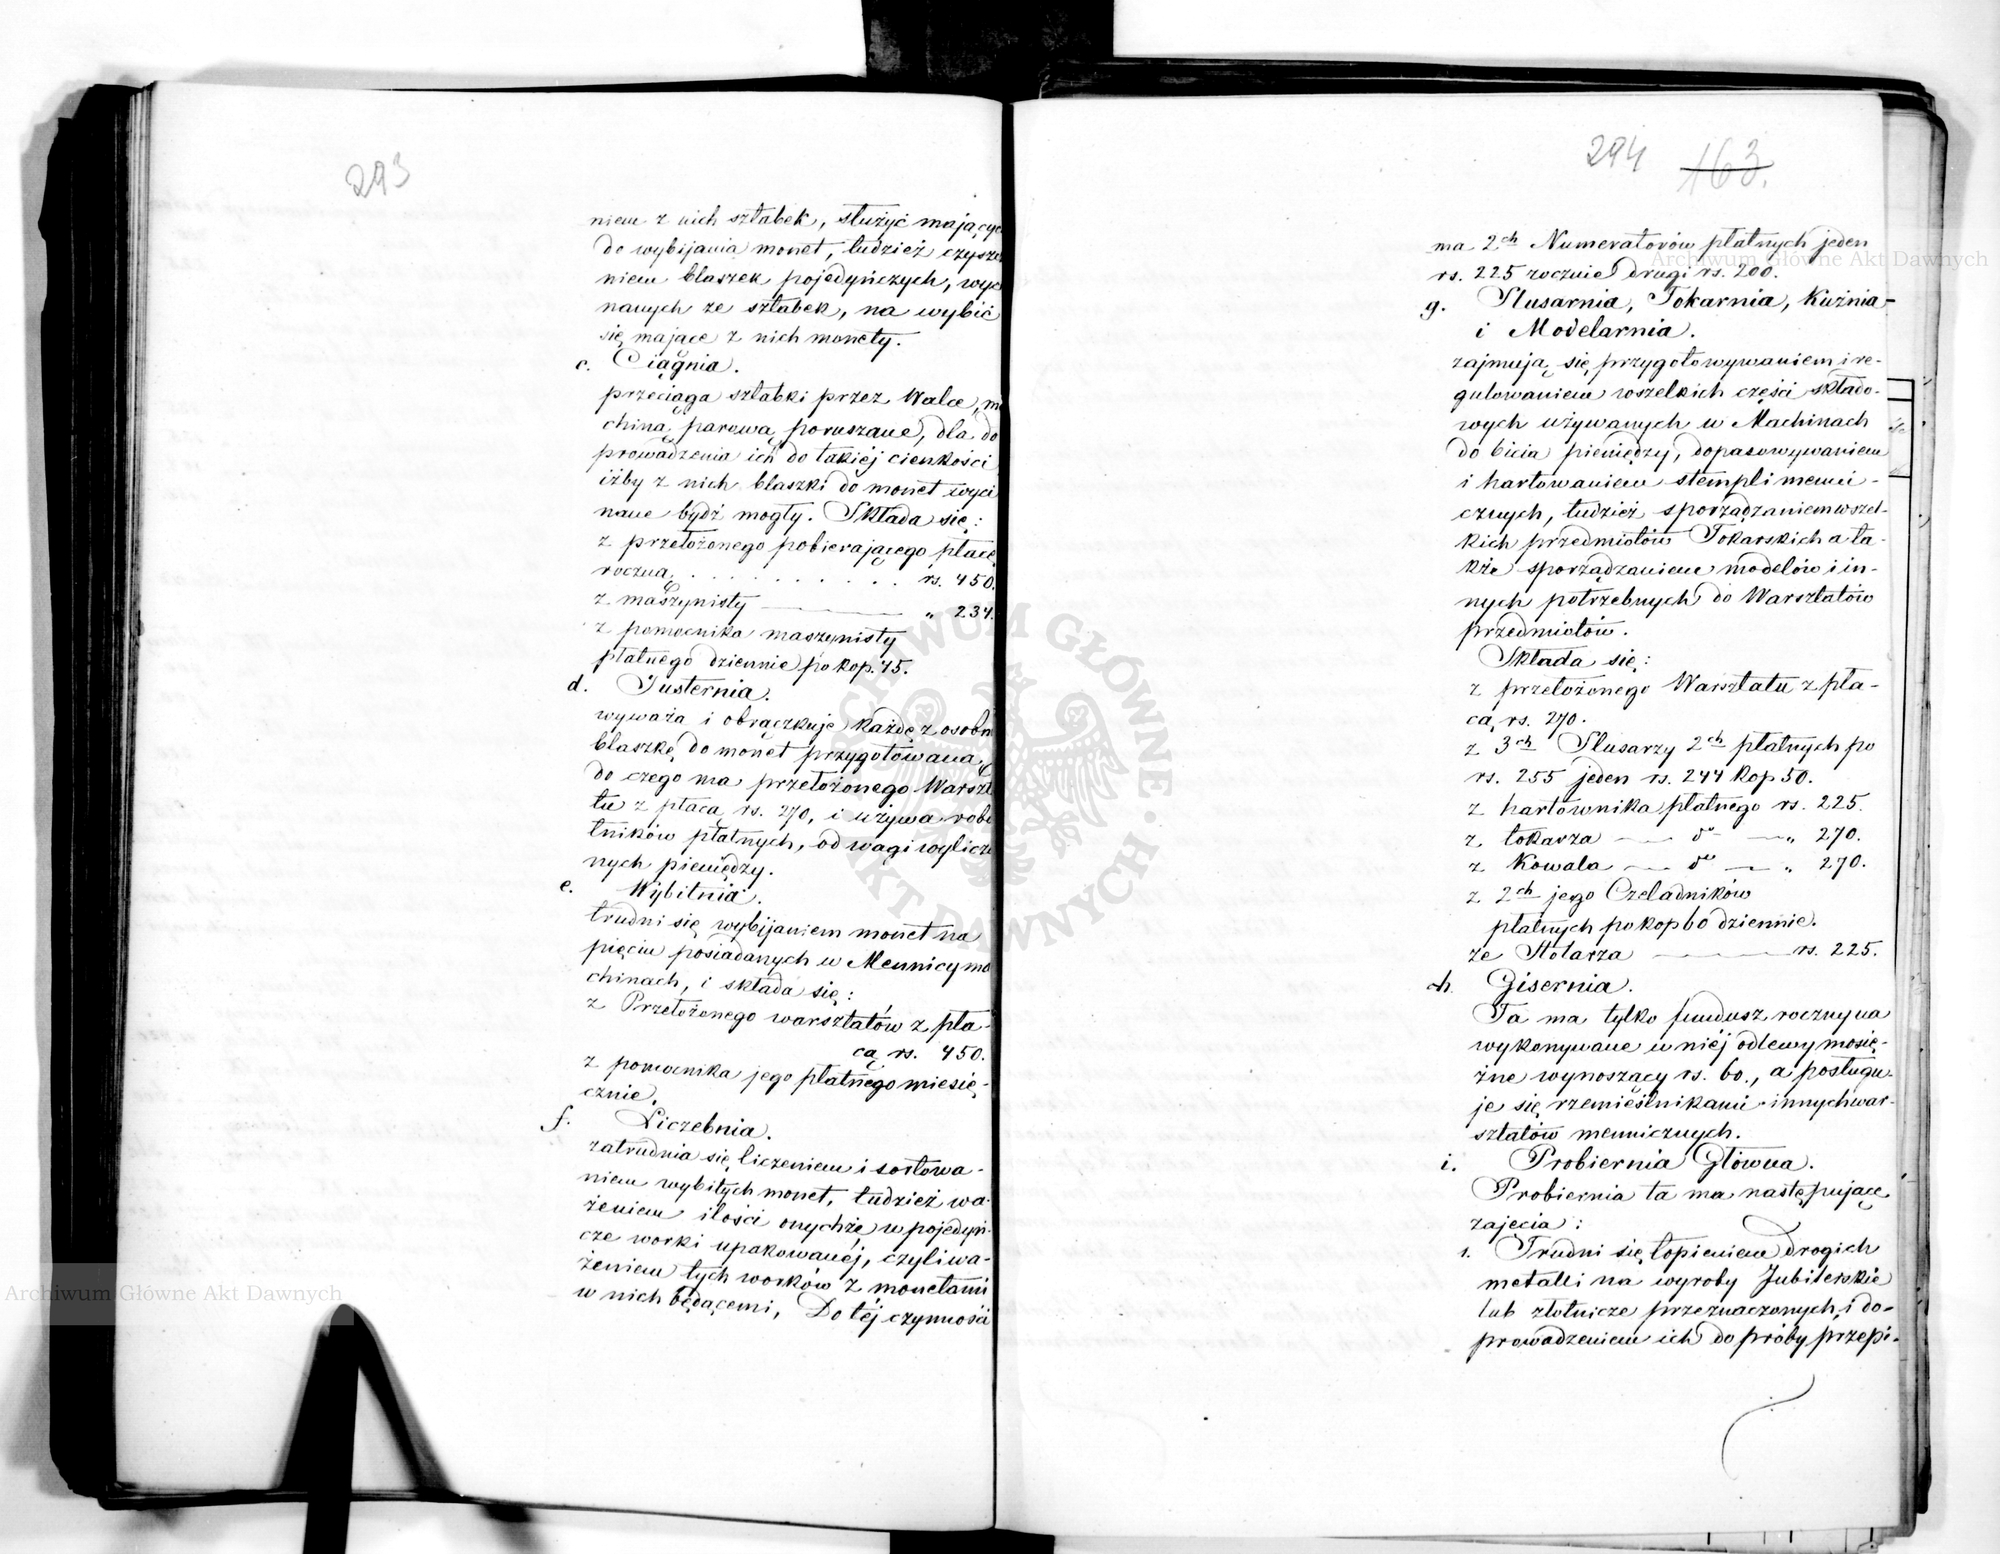 293
niem z nich sztabek, służyć mający
do wybijania monet, tudzież czyszcze
niem blaszek pojedyńczych, wyci
nanych ze sztabek, na wybić
się mające z nich monety.
c. Ciągnia.
przeciąga sztabki przez Walce, ma
chiną parową poruszane, dla do
prowadzenia ich do takiéj cienkości
iżby z nich blaszki do monet wyci
nane bydź mogły. Składa się:
z przełożonego pobierającego płacę
roczną . . . . . . . . . . rs. 450.
z maszynisty — „ 234.
z pomocnika maszynisty
płatnego dziennie po kop. 45.
d. Justernia.
wyważa i obrączkuje każdę z osobn
blaszkę do monet przygotowaną,
do czego ma przełożonego Warszta
tu z płacą rs. 270, i używa robo
tników płatnych, od wagi wylicza
nych pieniędzy.
e. Wybitnia.
trudni się wybijaniem monet na
pięciu posiadanych w Mennicy ma
chinach, i składa się:
z Przełożonego warsztatów z pła-
cą rs. 450.
z pomocnika jego płatnego miesię-
cznie.
f. Liczebnia.
zatrudnia się liczeniem i sortowa-
niem wybitych monet, tudzież wa-
żeniem ilości onychże w pojedyń-
cze worki upakowanéj, czyli wa-
żeniem tych worków z monetami
w nich będącemi, Do téj czynności
294 163.
ma 2ch Numeratorów płatnych jeden
rs. 225 rocznie drugi rs. 200.
g. Slusarnia, Tokarnia, Kuźnia-
i Modelarnia.
zajmują się przygotowywaniem i re-
gulowaniem wszelkich części składo-
wych używanych w Machinach
do bicia pieniędzy, dopasowywaniem
i hartowaniem stempli menni-
cznych, tudzież sporządzaniem wszel-
kich przedmiotów Tokarskich a ta-
kże sporządzaniem modelów i in-
nych potrzebnych do Warsztatów
przedmiotów.
Składa się:
z przełożonego Warsztatu z pła-
cą rs. 270.
z 3ch Slusarzy 2ch płatnych po
rs. 255 jeden rs. 244 kop 50.
z hartownika płatnego rs. 225.
z tokarza — do — „ 270.
z Kowala — do — „ 270.
z 2ch jego Czeladników
płatnych po kop 60 dziennie.
ze Stolarza — rs. 225.
h. Gisernia.
Ta ma tylko fundusz roczny na
wykonywane w niéj odlewy mosię-
żne wynoszący rs. 60., a posługu-
je się rzemieślnikami innych war-
sztatów mennicznych.
i. Probiernia Główna.
Probiernia ta ma następujące
zajęcia:
1. Trudni się topieniem drogich
metalli na wyroby Jubilerskie
lub złotnicze przeznaczonych, i do-
prowadzeniem ich do próby przepi-
Archiwum Główne Akt Dawnych
Archiwum Główne Akt Dawnych
ARCHIWUM GŁÓWNE AKT DAWNYCH